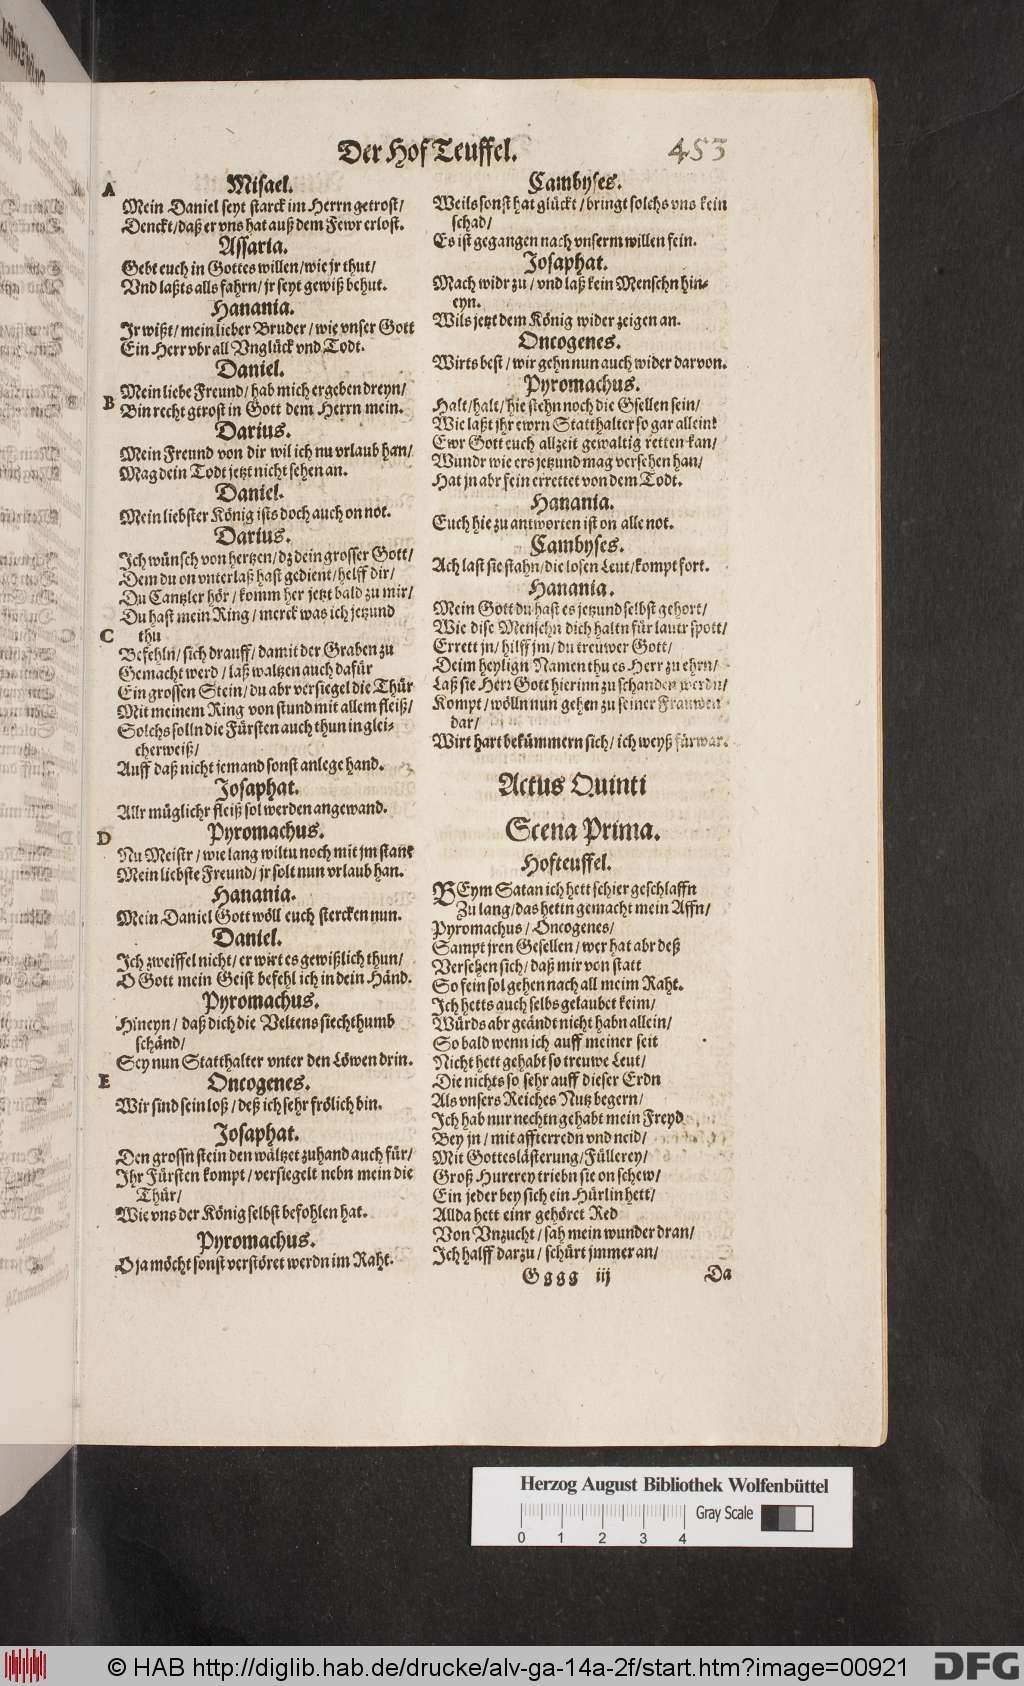 Der Hof Teuffel.
453
A
Misael.
Mein Daniel seyt starck im Herrn getrost/
Denckt/daß er vns hat auß dem Fewr erlost.
Assaria.
Gebt euch in Gottes willen/wie jr thut/
Vnd laßts alls fahrn/jr seyt gewiß behut.
Hanania.
Ir wißt/mein lieber Bruder/wie vnser Gott
Ein Herr vbr all Vnglück vnd Todt.
Daniel.
Mein liebe Freund/hab mich ergeben dreyn/
B
Bin recht gtrost in Gott dem Herrn mein.
Darius.
Mein Freund von dir wil ich nu vrlaub han/
Mag dein Todt jetzt nicht sehen an.
Daniel.
Mein liebster König ists doch auch on not.
Darius.
Ich wünsch von hertzen/dz dein grosser Gott/
Dem du on vnterlaß hast gedient/helff dir/
Du Cantzler hör/komm her jetzt bald zu mir/
Du hast mein Ring/merck was ich jetzund
C
thu
Befehln/sich drauff/damit der Graben zu
Gemacht werd/laß waltzen auch dafür
Ein grossen Stein/du abr versiegel die Thür
Mit meinem Ring von stund mit allem fleiß/
Solchs solln die Fürsten auch thun in glei-
cherweiß/
Auff daß nicht jemand sonst anlege hand.
Josaphat.
Allr müglichr fleiß sol werden angewand.
Pyromachus.
D
Nu Meistr/wie lang wiltu noch mit jm stane
Mein liebste Freund/jr solt nun vrlaub han.
Hanania.
Mein Daniel Gott wöll euch stercken nun.
Daniel.
Ich zweiffel nicht/er wirt es gewißlich thun/
O Gott mein Geist befehl ich in dein Händ.
Pyromachus.
Hineyn/daß dich die Veltens siechthumb
schänd/
Sey nun Statthalter vnter den Löwen drin.
E
Oncogenes.
Wir sind sein loß/deß ich sehr frölich bin.
Josaphat.
Den grossn stein den wältzet zuhand auch für/
Ihr Fürsten kompt/versiegelt nebn mein die
Thür/
Wie vns der König selbst befohlen hat.
Pyromachus.
O ja möcht sonst verstöret werdn im Raht.
Cambyses.
Weils sonst hat glückt/bringt solchs vns kein
schad/
Es ist gegangen nach vnserm willen fein.
Josaphat.
Mach widr zu/vnd laß kein Menschn hin-
eyn.
Wils jetzt dem König wider zeigen an.
Oncogenes.
Wirts best/wir gehn nun auch wider darvon.
Pyromachus.
Halt/halt/hie stehn noch die Gsellen sein/
Wie laßt jhr ewrn Statthalter so gar allein?
Ewr Gott euch allzeit gewaltig retten kan/
Wundr wie ers jetzund mag versehen han/
Hat jn abr fein errettet von dem Todt.
Hanania.
Euch hie zu antworten ist on alle not.
Cambyses.
Ach last sie stahn/die losen Leut/kompt fort.
Hanania.
Mein Gott du hast es jetzund selbst gehort/
Wie dise Menschn dich haltn für lautr spott/
Errett jn/hilff jm/du treuwer Gott/
Deim heylign Namen thu es Herr zu ehrn/
Laß sie Herr Gott hierinn zu schanden werdn/
Kompt/wölln nun gehen zu seiner Frauwen
dar/
Wirt hart bekümmern sich/ich weyß fürwar.
Actus Quinti
Scena Prima.
Hofteuffel.
BEym Satan ich hett schier geschlaffn
Zu lang/das hettn gemacht mein Affn/
Pyromachus/Oncogenes/
Sampt jren Gesellen/wer hat abr deß
Versehen sich/daß mir von statt
So fein sol gehen nach all meim Raht.
Ich hetts auch selbs gelaubet keim/
Würds abr geändt nicht habn allein/
So bald wenn ich auff meiner seit
Nicht hett gehabt so treuwe Leut/
Die nichts so sehr auff dieser Erdn
Als vnsers Reiches Nutz begern/
Ich hab nur nechtn gehabt mein Freyd
Bey jn/mit affterredn vnd neid/
Mit Gotteslästerung/Füllerey/
Groß Hurerey triebn sie on schew/
Ein jeder bey sich ein Hürlin hett/
Allda hett einr gehöret Red
Von Vnzucht/sah mein wunder dran/
Ich halff darzu/schürt jmmer an/
Gggg iij
Da
Herzog August Bibliothek Wolfenbüttel
0 1 2 3 4
Gray Scale
© HAB http://diglib.hab.de/drucke/alv-ga-14a-2f/start.htm?image=00921
DFG